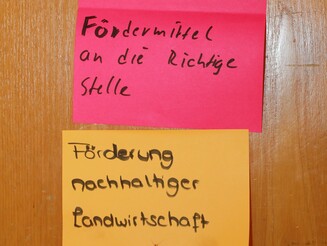 Fördermittel
an die Richtige
Stelle
Förderung
nachhaltiger
Landwirtschaft